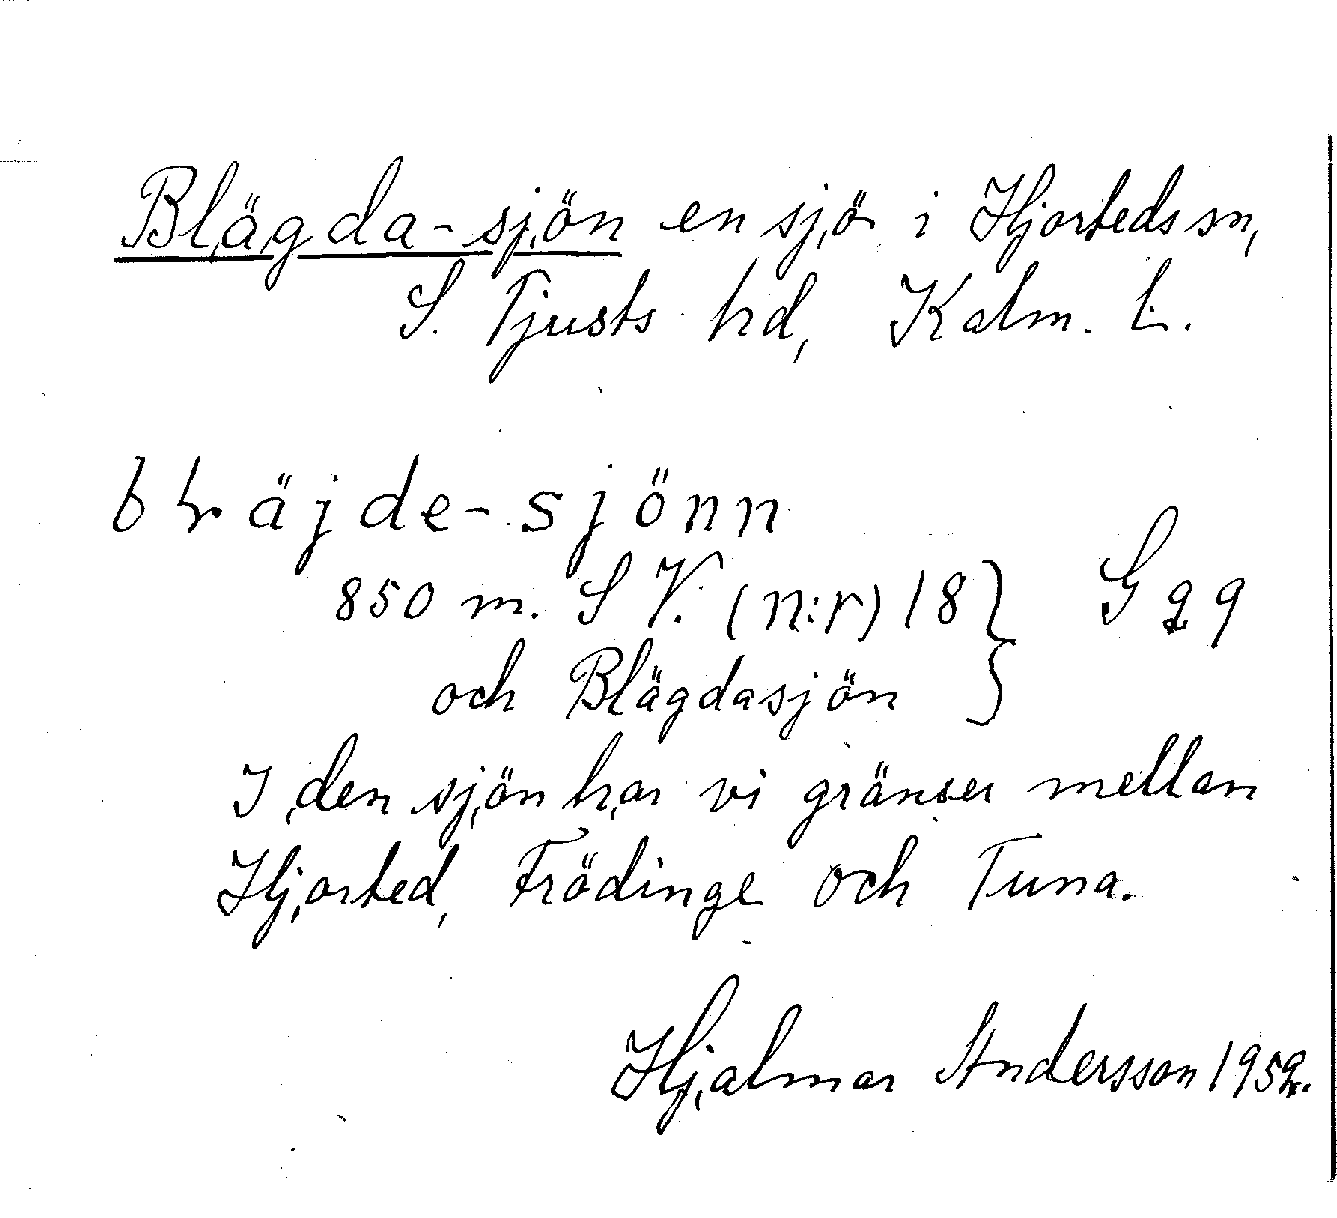 Blägda-sjön en sjö i Hjorteds sn,
S. Tjusts hd, Kalm. L.
bläjde-sjönn
850 m. SV. (n:r) 18 } G 2 9
och Blägdasjön
I den sjön har vi gränser mellan
Hjorted, Frödinge och Tuna.
Hjalmar Andersson 1952.